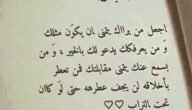 اجعل من يراك يتمنى ان يكون مثلك
و من يعرفك يدعو لك بالخير ، و من
يسمع عنك يتمنى مقابلتك فمن تعطر
بأخلاقه لن يجف عطرهه حتى لو كان
تحت التراب ♡♡